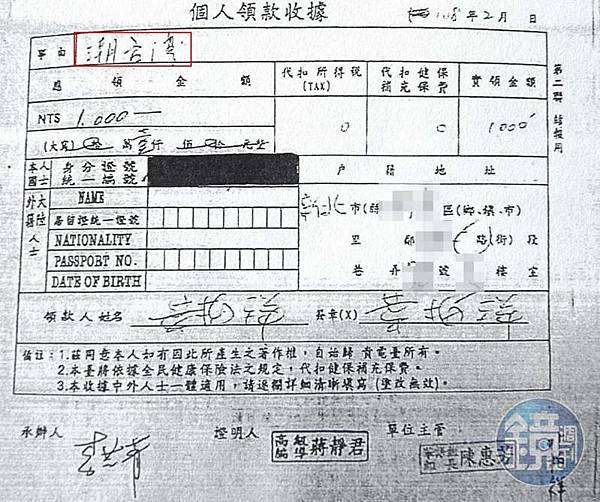 個人領款收據
108年2月 日
事由 潮台灣
應領金額
代扣所得稅
(TAX)
代扣健保
補充保費
實領金額
NT$ 1,000
0
0
1000
(大寫) 萬壹仟 佰 拾 元整
第二聯 結報用
本國人士
身分證號
統一編號
戶籍地址
外大籍陸人士
NAME
居留證統一證號
NATIONALITY
PASSPORT NO.
DATE OF BIRTH
新北市(縣 區(鄉、鎮、市)
里 鄰 路(街) 段
巷 弄 號 樓 室
領款人姓名
簽章(X)
備註:1.茲同意本人如有因此所產生之著作權,自始歸 貴電臺所有。
2.本臺將依據全民健康保險法之規定,代扣健保補充保費。
3.本收據中外人士一體適用,請逐欄詳細清晰填寫(塗改無效)。
承辦人
證明人
高級編導 蔣靜君
單位主管
組長 陳惠
鏡週刊